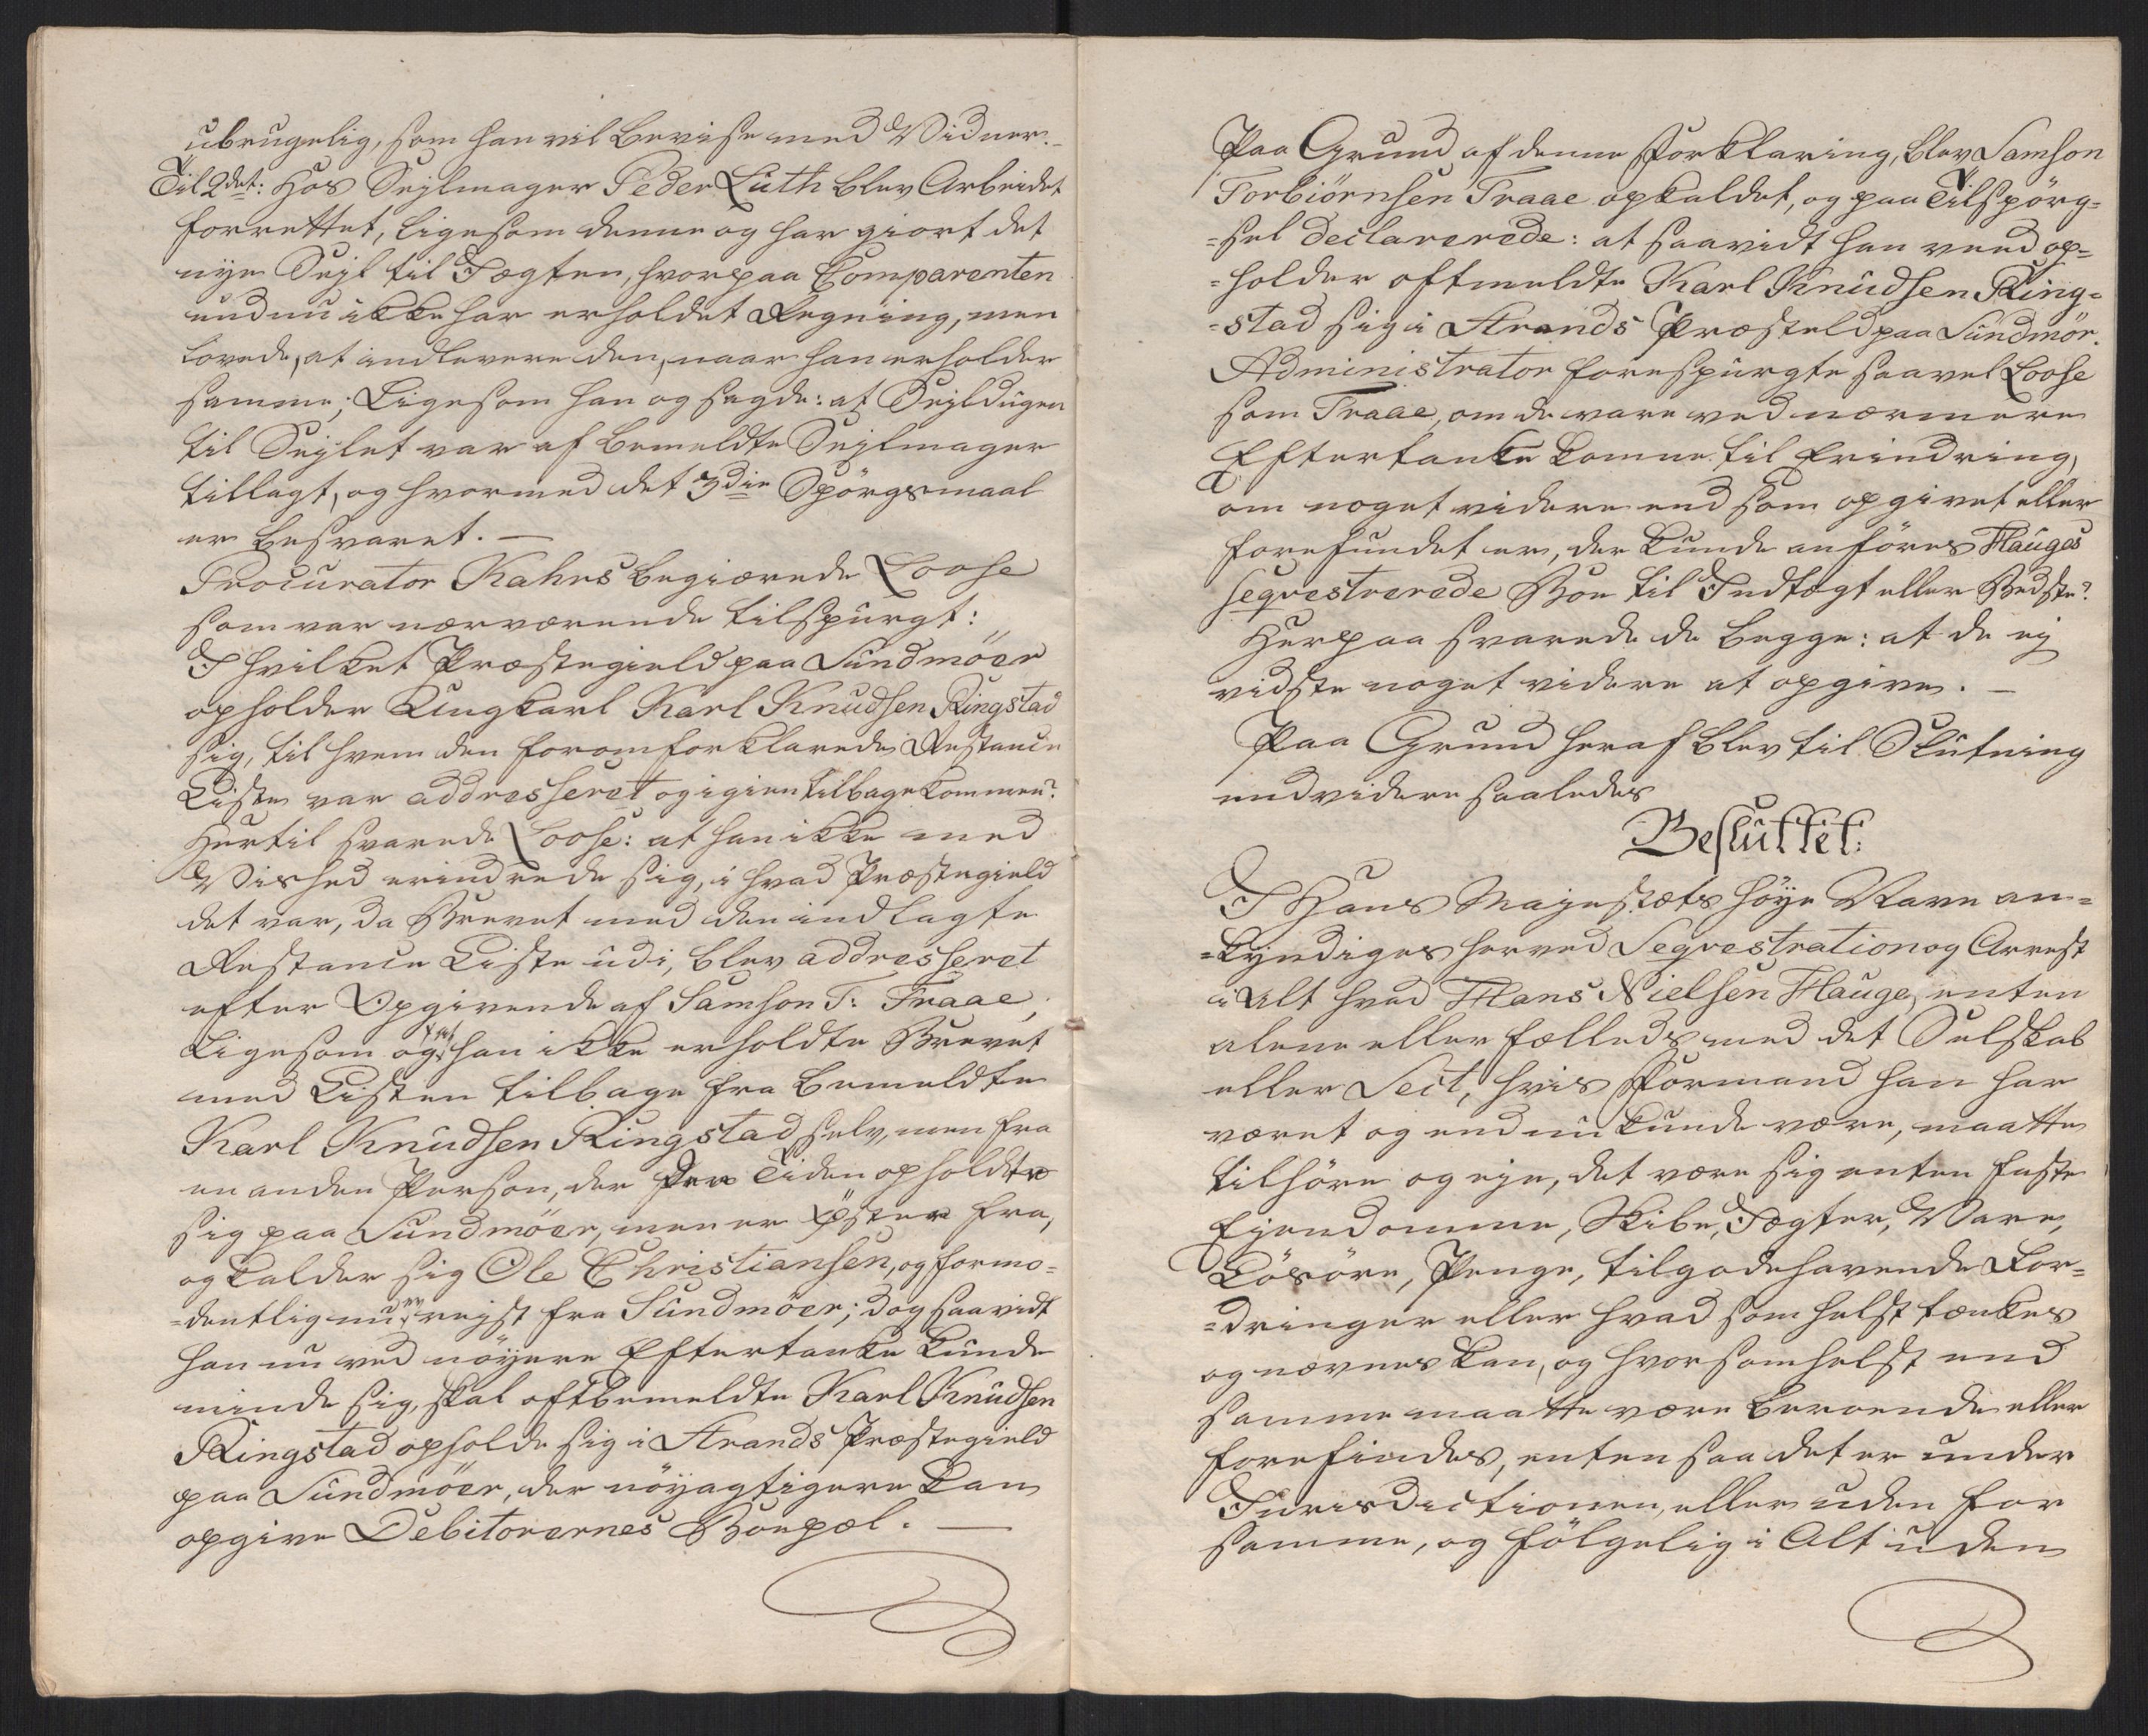 ubrugelig, som han vil bevise med Vidner.
Til 2det: Hos Sejlmager Peder Lüth blev Arbeidet
forrettet, ligesom denne og har giort det
nye Sejl til Jægten, hvorpaa Comparenten
endnu ikke har erholdet Regning, men
lovede, at indlevere den, naar han erholder
samme; Ligesom han og sagde: at Sejldugen
til Sejlet var af bemeldte Sejlmager
tillagt, og hvormed det 3die Spörgsmaal
er besvaret. —
Procurator Kahrs begiærede Loose
som var nærværende tilspurgt:
I hvilket Præstegield paa Sundmöer
opholder Ungkarl Karl Knudsen Ringstad
sig, til hvem den foromforklarede Restance
Liste var addresseret og igien tilbagekommen?
Hertil svarede Loose: at han ikke med
Vished erindrede sig, i hvad Præstegield
det var, da Brevet med den indlagte
Restance Liste udi, blev addresseret
efter Opgivende af Samson T: Traae,
Ligesom og han ikke erholdte Brevet
med Listen tilbage fra bemeldte
Karl Knudsen Ringstad selv, men fra
en anden Person, der Tiden opholdte
sig paa Sundmöer, men er Öster fra,
og kalder sig Ole Christiansen, og formo=
=dentlig nu er rejst fra Sundmöer; dog saavidt
han nu ved nöyere Eftertanke kunde
minde sig, skal oftbemeldte Karl Knudsen
Ringstad opholde sig i Strands Præstegield
paa Sundmöer, der nöyagtigere kan
opgive Debitorernes Boepæl. —
Paa Grund af denne Forklaring, blev Samson
Torbiörnsen Traae opkaldet, og paa Tilspörg=
=sel declarerede: at saavidt han veed op=
=holder oftmeldte Karl Knudsen Ring=
=stad sig i Strands Præsteld paa Sundmör.
Administrator forespurgte saavel Loose
som Traae, om de vare ved nærmere
Eftertanke komne til Erindring,
om noget videre end som opgivet eller
forefundet er, der kunde anföres Hauges
seqvestrerede Boe til Indtægt eller Bedste?
Herpaa svarede de begge: at de ej
vidste noget videre at opgive. —
Paa Grund heraf blev til Slutning
endvidere saaledes
Besluttet:
I Hans Majestæts höye Navn an=
=kyndiges herved Seqvestration og Arrest
i Alt hvad Hans Nielsen Hauge, enten
alene eller fælleds med det Selskab
eller Sect, hvis Formand han har
været og endnu kunde være, maatte
tilhöre og eje, det være sig enten faste
Ejendomme, Skibe, Jægter, Vare,
Lösöre, Penge, tilgodehavende For=
=dringer eller hvad somhelst tænkes
og nævnes kan, og hvorsomhelst end
samme maatte være beroende eller
forefindes, enten saa det er under
Jurisdictionen, eller uden for
samme, og fölgelig i Alt uden